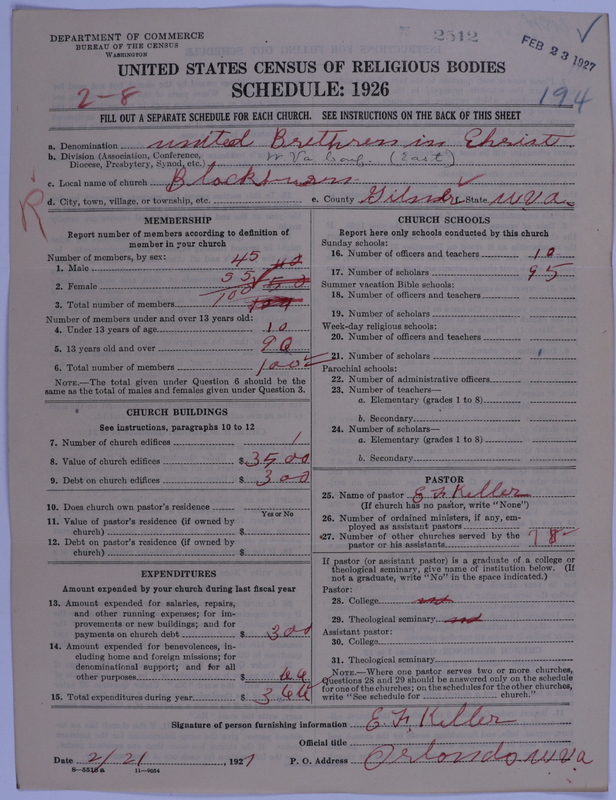 DEPARTMENT OF COMMERCE
BUREAU OF THE CENSUS
WASHINGTON
2512
FEB 23 1927
UNITED STATES CENSUS OF RELIGIOUS BODIES
SCHEDULE: 1926
2-8
194
FILL OUT A SEPARATE SCHEDULE FOR EACH CHURCH. SEE INSTRUCTIONS ON THE BACK OF THIS SHEET
a. Denomination United Brethren in Christ
b. Division (Association, Conference, Diocese, Presbytery, Synod, etc.) W Va Conf. (East)
c. Local name of church Blackburn
d. City, town, village, or township, etc.
e. County Gilmer State W Va.
R
MEMBERSHIP
Report number of members according to definition of member in your church
Number of members, by sex:
1. Male 45
2. Female 55
3. Total number of members 100
Number of members under and over 13 years old:
4. Under 13 years of age 10
5. 13 years old and over 90
6. Total number of members 100
NOTE.—The total given under Question 6 should be the same as the total of males and females given under Question 3.
CHURCH BUILDINGS
See instructions, paragraphs 10 to 12
7. Number of church edifices 1
8. Value of church edifices $ 3500
9. Debt on church edifices $ 300
10. Does church own pastor's residence
Yes or No
11. Value of pastor's residence (if owned by church) $
12. Debt on pastor's residence (if owned by church) $
EXPENDITURES
Amount expended by your church during last fiscal year
13. Amount expended for salaries, repairs, and other running expenses; for improvements or new buildings; and for payments on church debt $ 300
14. Amount expended for benevolences, including home and foreign missions; for denominational support; and for all other purposes $ 66
15. Total expenditures during year $ 366
CHURCH SCHOOLS
Report here only schools conducted by this church
Sunday schools:
16. Number of officers and teachers 10
17. Number of scholars 95
Summer vacation Bible schools:
18. Number of officers and teachers
19. Number of scholars
Week-day religious schools:
20. Number of officers and teachers
21. Number of scholars
Parochial schools:
22. Number of administrative officers
23. Number of teachers—
a. Elementary (grades 1 to 8)
b. Secondary
24. Number of scholars—
a. Elementary (grades 1 to 8)
b. Secondary
PASTOR
25. Name of pastor E F Killer
(If church has no pastor, write "None")
26. Number of ordained ministers, if any, employed as assistant pastors
27. Number of other churches served by the pastor or his assistants
If pastor (or assistant pastor) is a graduate of a college or theological seminary, give name of institution below. (If not a graduate, write "No" in the space indicated.)
Pastor:
28. College
29. Theological seminary
Assistant pastor:
30. College
31. Theological seminary
NOTE.—Where one pastor serves two or more churches, Questions 28 and 29 should be answered only on the schedule for one of the churches; on the schedules for the other churches, write "See schedule for church."
Signature of person furnishing information E F Killer
Official title
Date 2/21, 1927
P. O. Address Orlando W Va
8-5518 a 11-9054